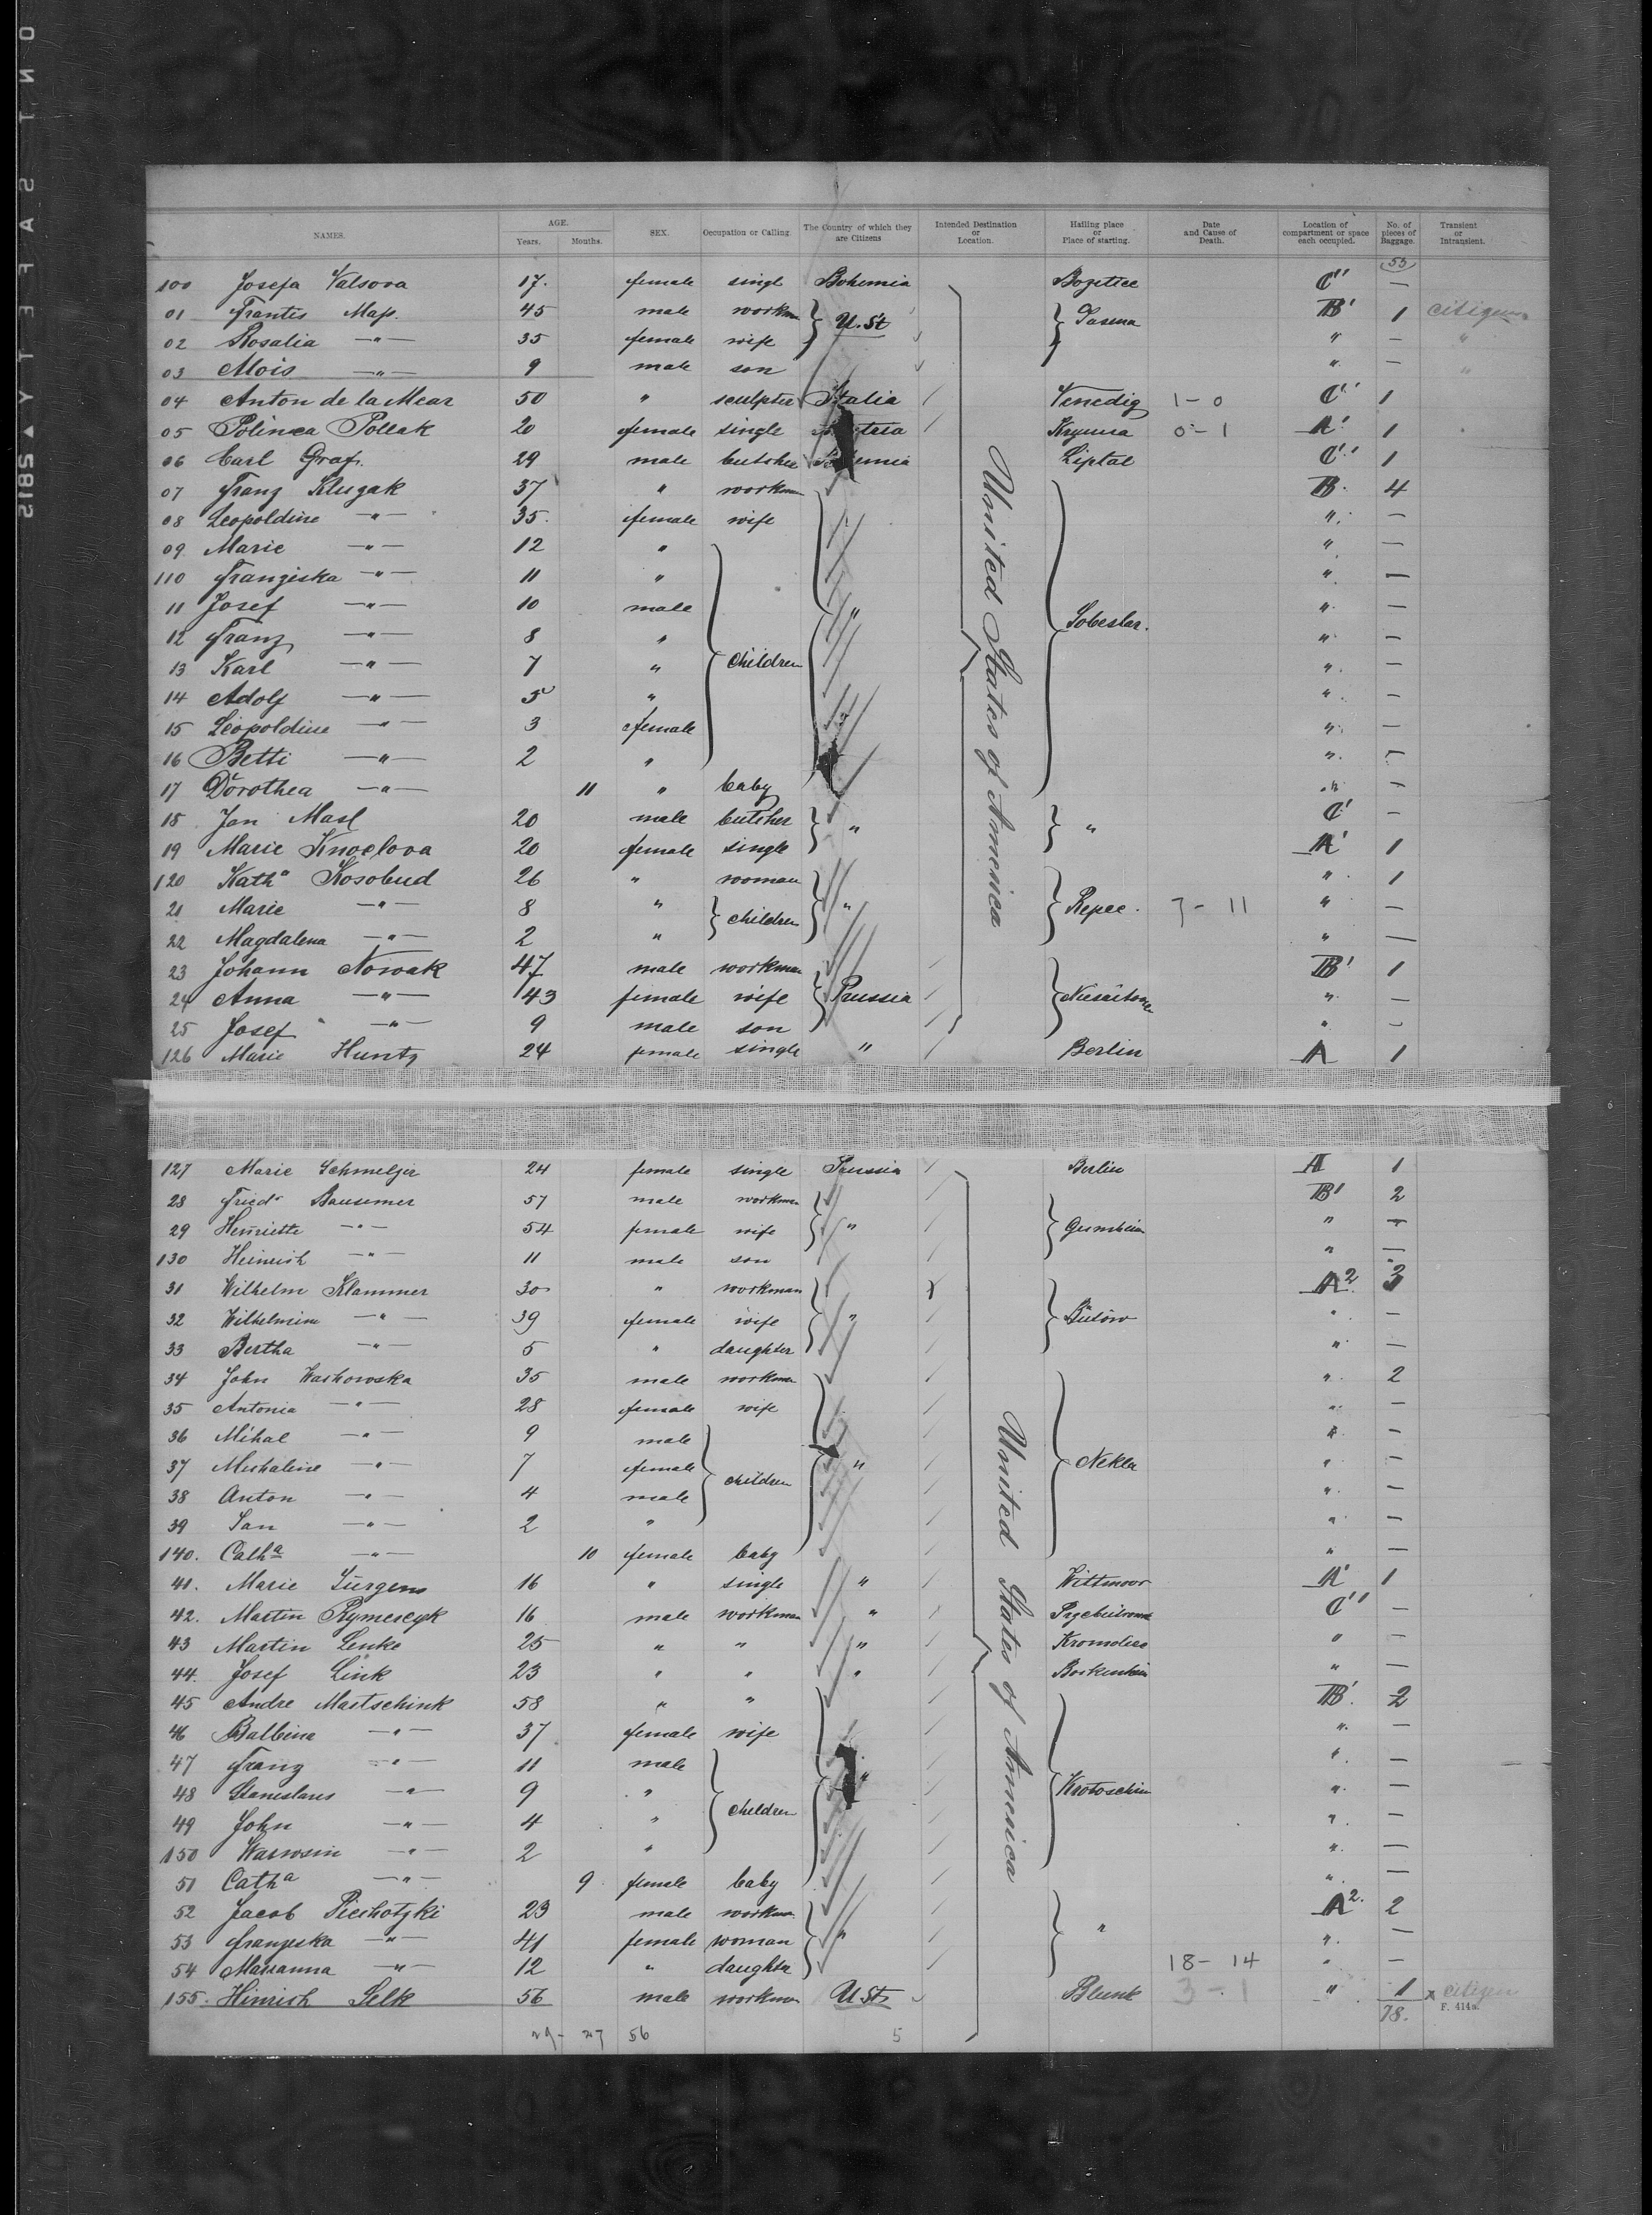 NAMES. AGE. Years. Months. SEX. Occupation or Calling. The Country of which they are Citizens Intended Destination or Location. Hailing place or Place of starting. Date and Cause of Death. Location of compartment or space each occupied. No. of pieces of Baggage. Transient or Intransient.
53
100 Josefa Valsova 17. female singl Bohemia Bozetice C'' —
01 Frantis Map. 45 male workm U. St Sasma B' 1 citizens
02 Rosalia —"— 35 female wife " — "
03 Alois —"— 9 male son " — "
04 Anton de la Mear 50 " sculpter Italia Venedig 1 - 0 C' 1
05 Polinca Pollak 20 female single Krynna 0 - 1 A' 1
06 Carl Graf. 29 male butcher Liptal C'' 1
07 Franz Klugak 37 " workman B. 4
08 Leopoldine —"— 35. female wife " —
09 Marie —"— 12 " " —
110 Franziska —"— 11 " " —
11 Josef —"— 10 male " Sobeslav. " —
12 Franz —"— 8 " " —
13 Karl —"— 7 " children " —
14 Adolf —"— 5 " " —
15 Leopoldine —"— 3 female " —
16 Betti —"— 2 " " —
17 Dorothea —"— 11 " baby " —
18 Jan Masl 20 male butcher " " C' —
19 Marie Knoclova 20 female single A' 1
120 Kath^a Kosobud 26 " woman " 1
21 Marie —"— 8 " children " Repec. 7 - 11 " —
22 Magdalena —"— 2 " " —
23 Johann Nowak 47 male workman B' 1
24 Anna —"— 43 female wife Prussia " —
25 Josef —"— 9 male son " —
126 Marie Huntz 24 female single " Berlin A 1
127 Marie Schmelzer 24 female single Prussia Berlin A 1
28 Fried^r Bausemer 57 male workman B' 2
29 Henriette —"— 54 female wife " " —
130 Heinrich —"— 11 male son " —
31 Wilhelm Klammer 30 " workman A2. 3
32 Wilhelmine —"— 39 female wife " Bütow " —
33 Bertha —"— 5 " daughter " —
34 John Waskowska 35 male workman " 2
35 Antonia —"— 28 female wife " —
36 Mihal —"— 9 male " —
37 Michaline —"— 7 female children " Nekla " —
38 Anton —"— 4 male " —
39 Jan —"— 2 " " —
140. Cath^a —"— 10 female baby " —
41. Marie Jürgens 16 " single " Wittmoor A' 1
42. Martin Rymerczyk 16 male workman " C'' —
43 Martin Lenke 25 " " " " —
44. Josef Link 23 " " " " —
45 Andre Mastschink 58 " " B'. 2
46 Balbina —"— 37 female wife " —
47 Franz —"— 11 male " " —
48 Stanislaus —"— 9 " children Krotoschin " —
49 John —"— 4 " " —
150 —"— 2 " " —
51 Cath^a —"— 9 female baby " —
52 Jacob Piechotzki 23 male workman A2. 2
53 Franziska —"— 41 female woman " " " —
54 Marianna —"— 12 " daughter 18 - 14 " —
155. Hinrich Selk 56 male workman U St. Blunk 3 - 1 " 1 x citizen
United States of America
United States of America
78. F. 414a.
29 - 27 56 5